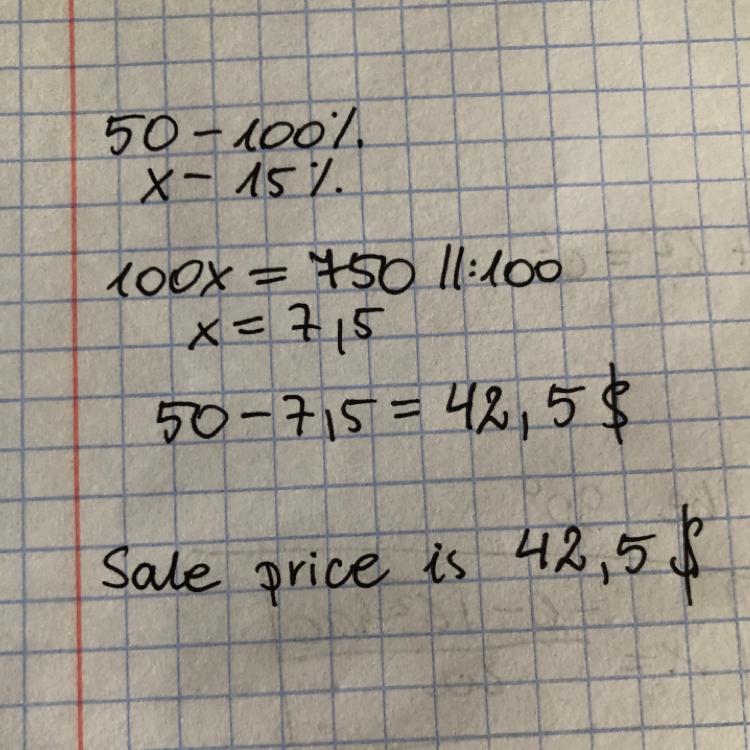 50 - 100%
x - 15%
100x = 750 ||:100
x = 7,5
50 - 7,5 = 42,5 $
Sale price is 42,5 $